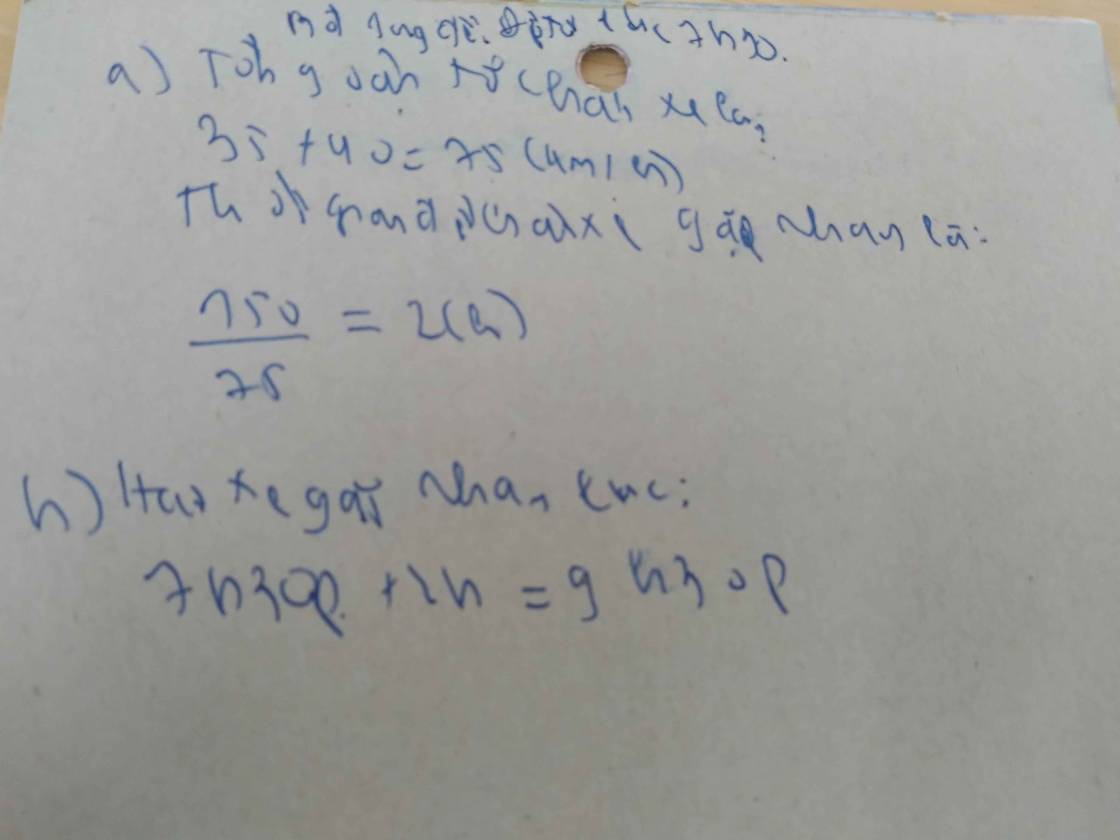 lúc 7h30.
a) Tổng vận tốc hai xe là:
35 + 40 = 75 (km/h)
Thời gian để hai xe gặp nhau là:
150
75 = 2(h)
b) Hai xe gặp nhau lúc:
7h30p + 2h = 9h30p